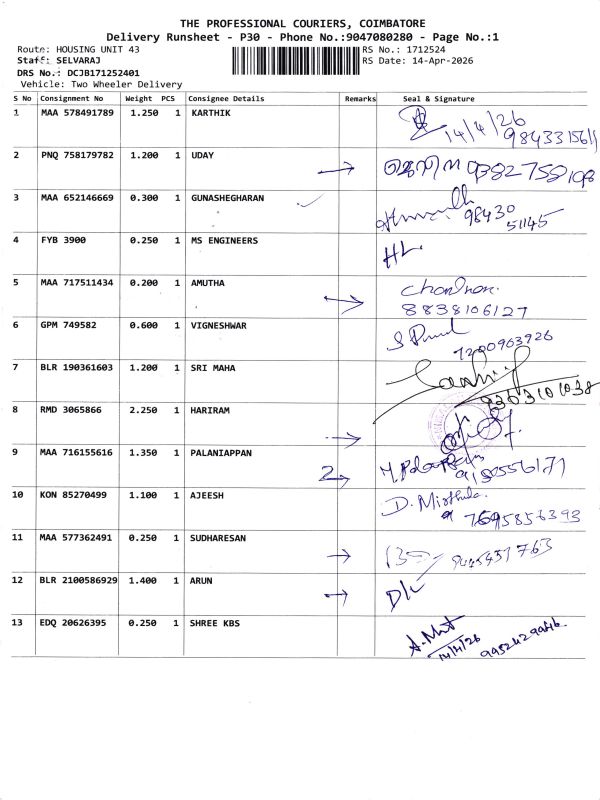 THE PROFESSIONAL COURIERS, COIMBATORE
Delivery Runsheet - P30 - Phone No.:9047080280 - Page No.:1
Route: HOUSING UNIT 43
RS No.: 1712524
Staff: SELVARAJ
RS Date: 14-Apr-2026
DRS No.: DCJB171252401
Vehicle: Two Wheeler Delivery
S No Consignment No Weight PCS Consignee Details Remarks Seal & Signature
1 MAA 578491789 1.250 1 KARTHIK 14/4/26
2 PNQ 758179782 1.200 1 UDAY 9382758108
3 MAA 652146669 0.300 1 GUNASHEGHARAN 98430
51145
4 FYB 3900 0.250 1 MS ENGINEERS HL.
5 MAA 717511434 0.200 1 AMUTHA
8838106127
6 GPM 749582 0.600 1 VIGNESHWAR
7200903926
7 BLR 190361603 1.200 1 SRI MAHA
9363101038
8 RMD 3065866 2.250 1 HARIRAM
9 MAA 716155616 1.350 1 PALANIAPPAN 2
10 KON 85270499 1.100 1 AJEESH D. Mirthula
7695856393
11 MAA 577362491 0.250 1 SUDHARESAN
12 BLR 2100586929 1.400 1 ARUN
13 EDQ 20626395 0.250 1 SHREE KBS
14/4/26